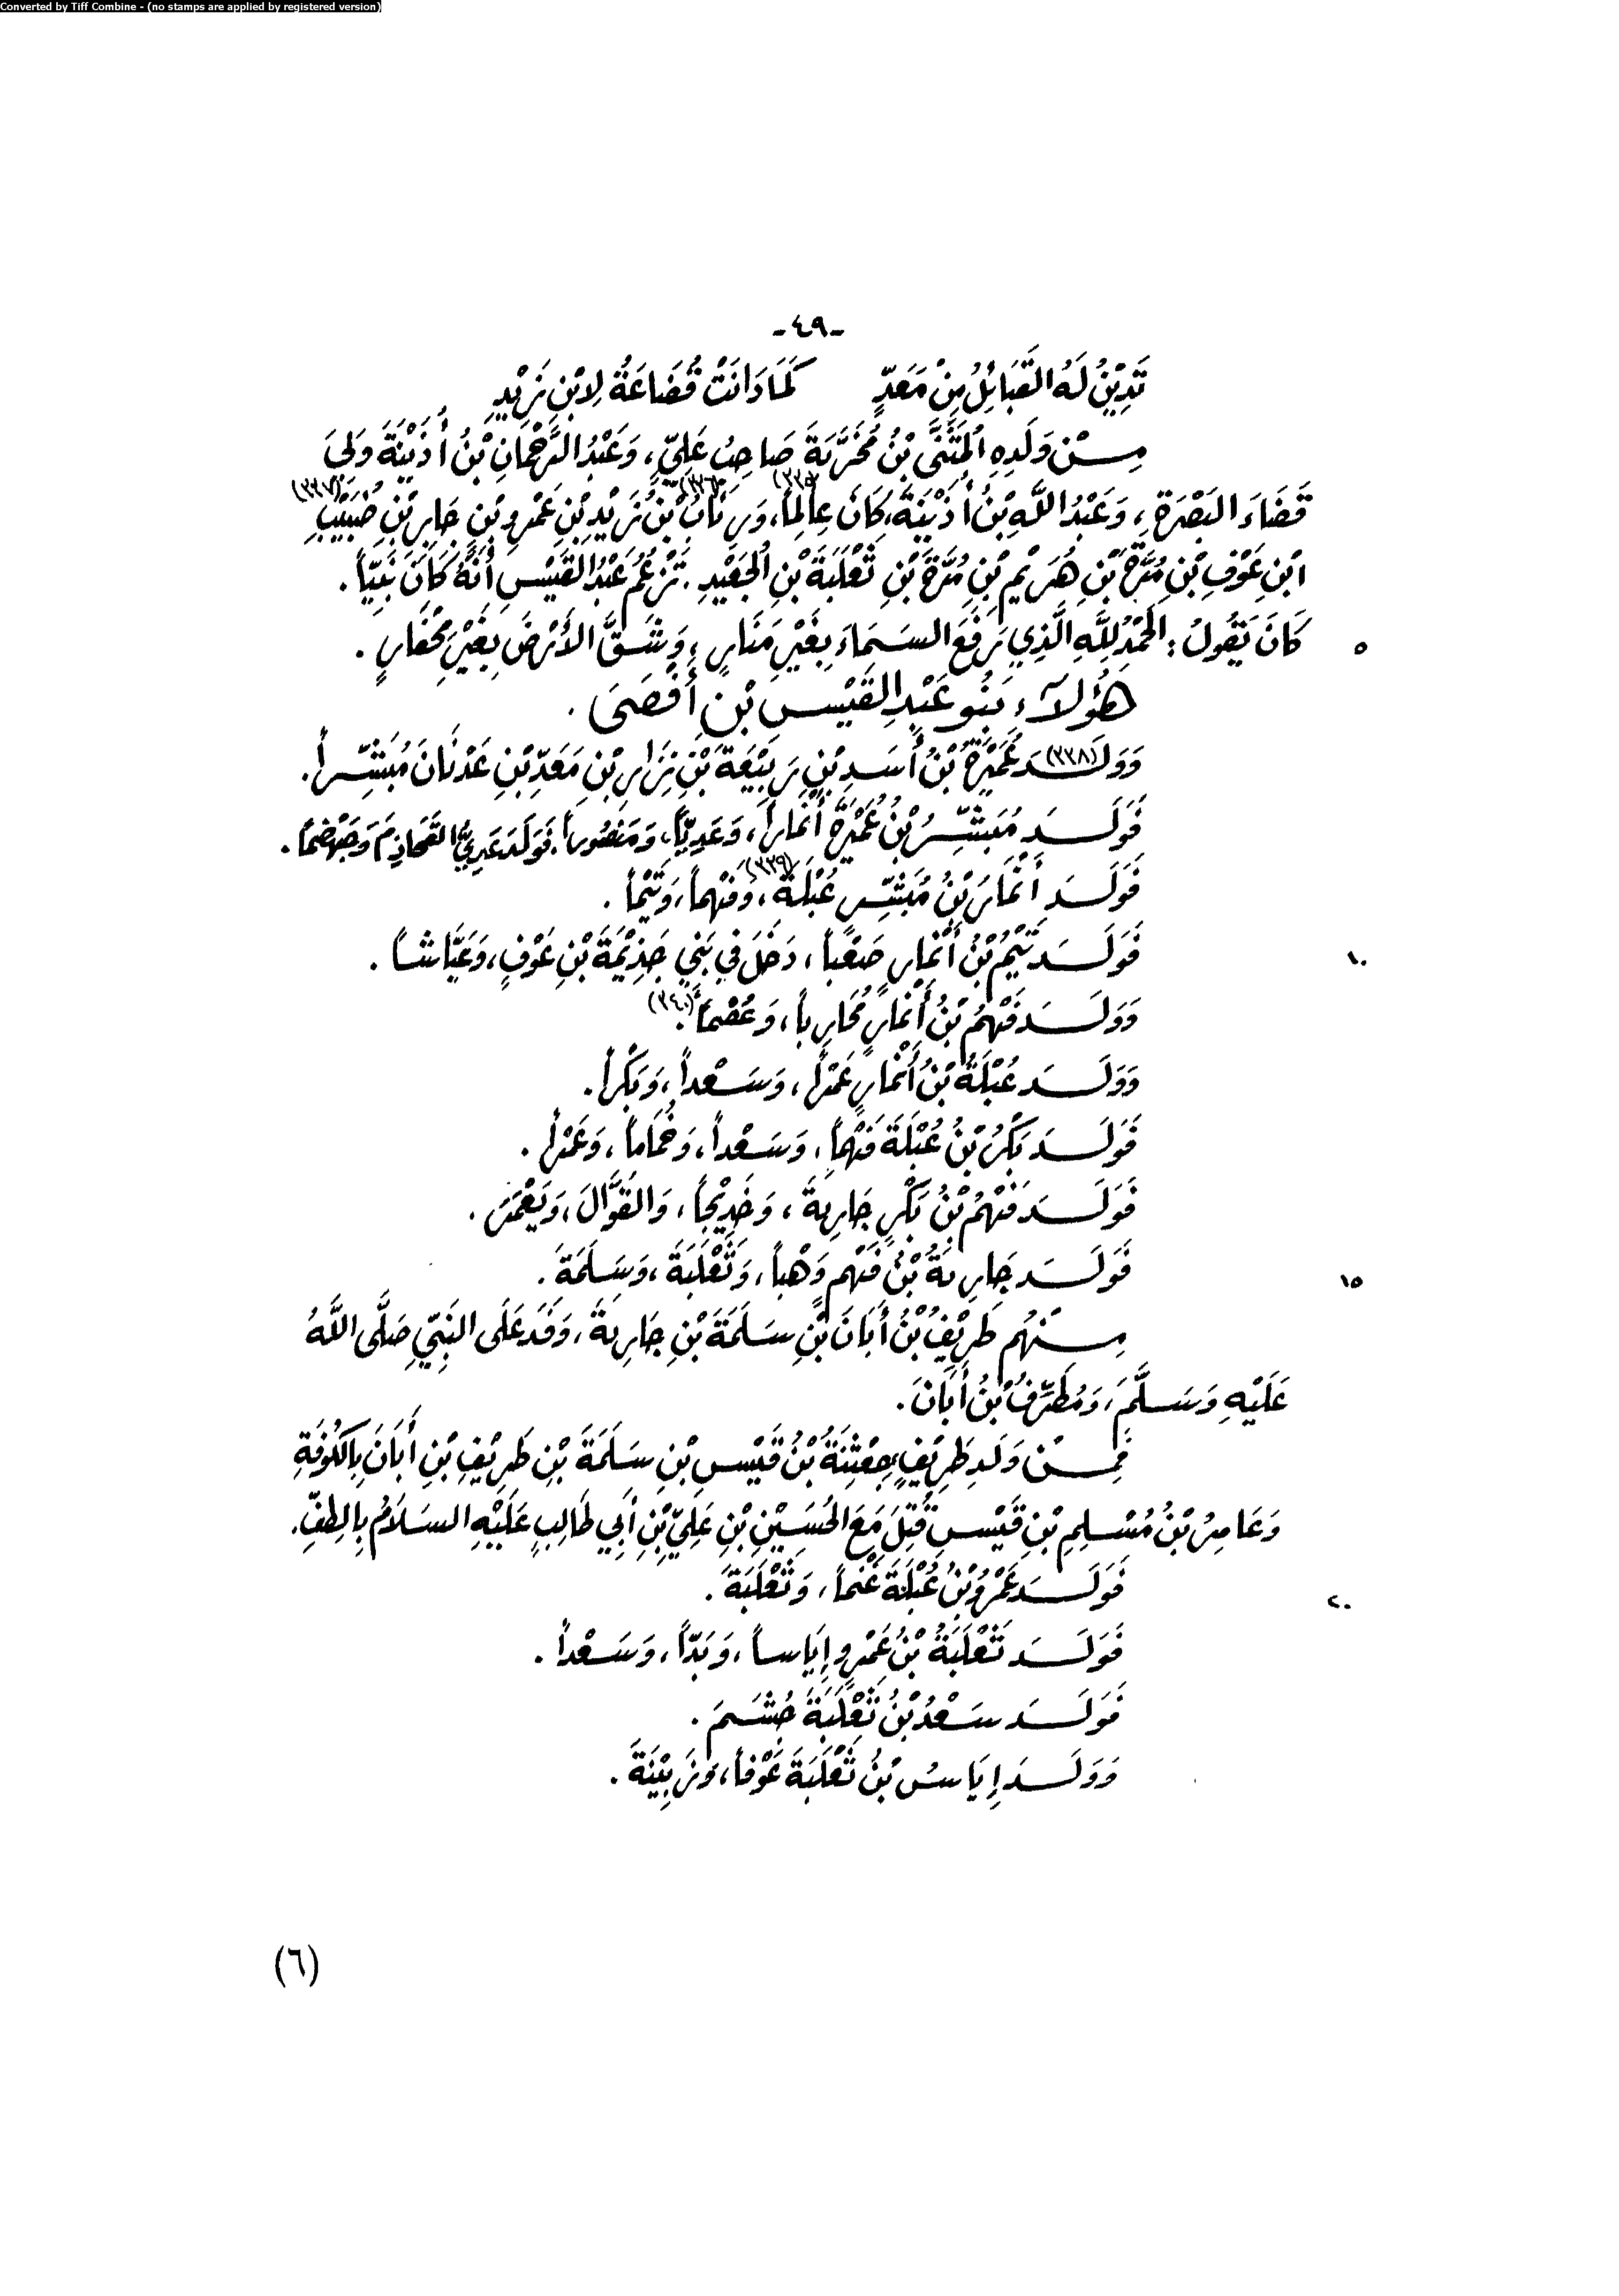 Converted by Tiff Combine - (no stamps are applied by registered version)
-٤٩-
تَدِيْنُ لَهُ القَبَائِلُ مِنْ مَعَدٍّ كَمَا دَانَتْ قُضَاعَةُ لِابْنِ زَيْدِ
مِنْ وَلَدِهِ المُثَنَّى بْنُ مُخَرَّبَةَ صَاحِبُ عَلِيٍّ، وَعَبْدُ الرَّحْمَانِ بْنُ أُذَيْنَةَ وَلِيَ
قَضَاءَ البَصْرَةِ، وَعَبْدُ اللَّهِ بْنُ أُذَيْنَةَ، كَانَ عَالِماً (٣٣٥)، وَرِئَابُ (٣٣٦) بْنُ زَيْدِ بْنِ عَمْرِو بْنِ جَابِرِ بْنِ ضُبَيْبِ (٣٣٧)
ابْنِ عَوْفِ بْنِ مُرَّةَ بْنِ هُرَيْمِ بْنِ مُرَّةَ بْنِ ثَعْلَبَةَ بْنِ الجُعَيْدِ. تَزْعُمُ عَبْدُ القَيْسِ أَنَّهُ كَانَ نَبِيّاً.
٥ كَانَ يَقُولُ: الحَمْدُ لِلَّهِ الَّذِي رَفَعَ السَمَاءَ بِغَيْرِ مَنَارٍ، وَشَقَّ الأَرْضَ بِغَيْرِ مِحْفَارٍ.
هٰؤُلَآءِ بَنُو عَبْدِ القَيْسِ بْنِ أَفْصَى.
وَوَلَدَ (٣٣٨) عُمَيْرَةُ بْنُ أَسَدِ بْنِ رَبِيْعَةَ بْنِ نِزَارِ بْنِ مَعَدِّ بْنِ عَدْنَانَ مُبَشِّراً.
فَوَلَدَ مُبَشِّرُ بْنُ عُمَيْرَةَ أَنْمَاراً، وَعَدِيّاً، وَمَنْصُوراً، فَوَلَدَ عَدِيٌّ القَحَاذِمَ وَجَهْضَماً.
فَوَلَدَ أَنْمَارُ بْنُ مُبَشِّرٍ عُبْلَةَ (٣٣٩)، وَفَهْماً، وَتَيْماً.
١٠ فَوَلَدَ تَيْمُ بْنُ أَنْمَارٍ صَعْباً، دَخَلَ فِي بَنِي جَذِيْمَةَ بْنِ عَوْفٍ، وَعَيَّاشاً.
وَوَلَدَ فَهْمُ بْنُ أَنْمَارٍ مُحَارِباً، وَعُصْماً (٣٤٠).
وَوَلَدَ عُبْلَةُ بْنُ أَنْمَارٍ عَمْراً، وَسَعْداً، وَبَكْراً.
فَوَلَدَ بَكْرُ بْنُ عُبْلَةَ فَهْماً، وَسَعْداً، وَحُمَاماً، وَعَمْراً.
فَوَلَدَ فَهْمُ بْنُ بَكْرٍ جَارِيَةَ، وَخَدِيْجاً، وَالقَوَّالَ، وَيَعْمَرَ.
١٥ فَوَلَدَ جَارِيَةُ بْنُ فَهْمٍ وَهْباً، وَثَعْلَبَةَ، وَسَلَمَةَ.
مِنْهُم طَرِيْفُ بْنُ أَبَانَ بْنِ سَلَمَةَ بْنِ جَارِيَةَ، وَفَدَ عَلَى النَبِيِّ صَلَّى اللَّهُ
عَلَيْهِ وَسَلَّمَ، وَمُطَرِّفُ بْنُ أَبَانَ.
فَمِنْ وَلَدِ طَرِيْفٍ جِعْثِنَةُ بْنُ قَيْسِ بْنِ سَلَمَةَ بْنِ طَرِيْفِ بْنِ أَبَانَ بِالكُوْفَةِ
وَعَامِرُ بْنُ مُسْلِمِ بْنِ قَيْسٍ قُتِلَ مَعَ الحُسَيْنِ بْنِ عَلِيِّ بْنِ أَبِي طَالِبٍ عَلَيْهِ السَلَامُ بِالطِفِّ.
٢٠ فَوَلَدَ عَمْرُو بْنُ عُبْلَةَ غَنْماً، وَثَعْلَبَةَ.
فَوَلَدَ ثَعْلَبَةُ بْنُ عَمْرٍو إِيَاساً، وَبَدّاً، وَسَعْداً.
فَوَلَدَ سَعْدُ بْنُ ثَعْلَبَةَ جُشَمَ.
وَوَلَدَ إِيَاسُ بْنُ ثَعْلَبَةَ عَوْفاً، وَزَبِيْنَةَ.
(٦)